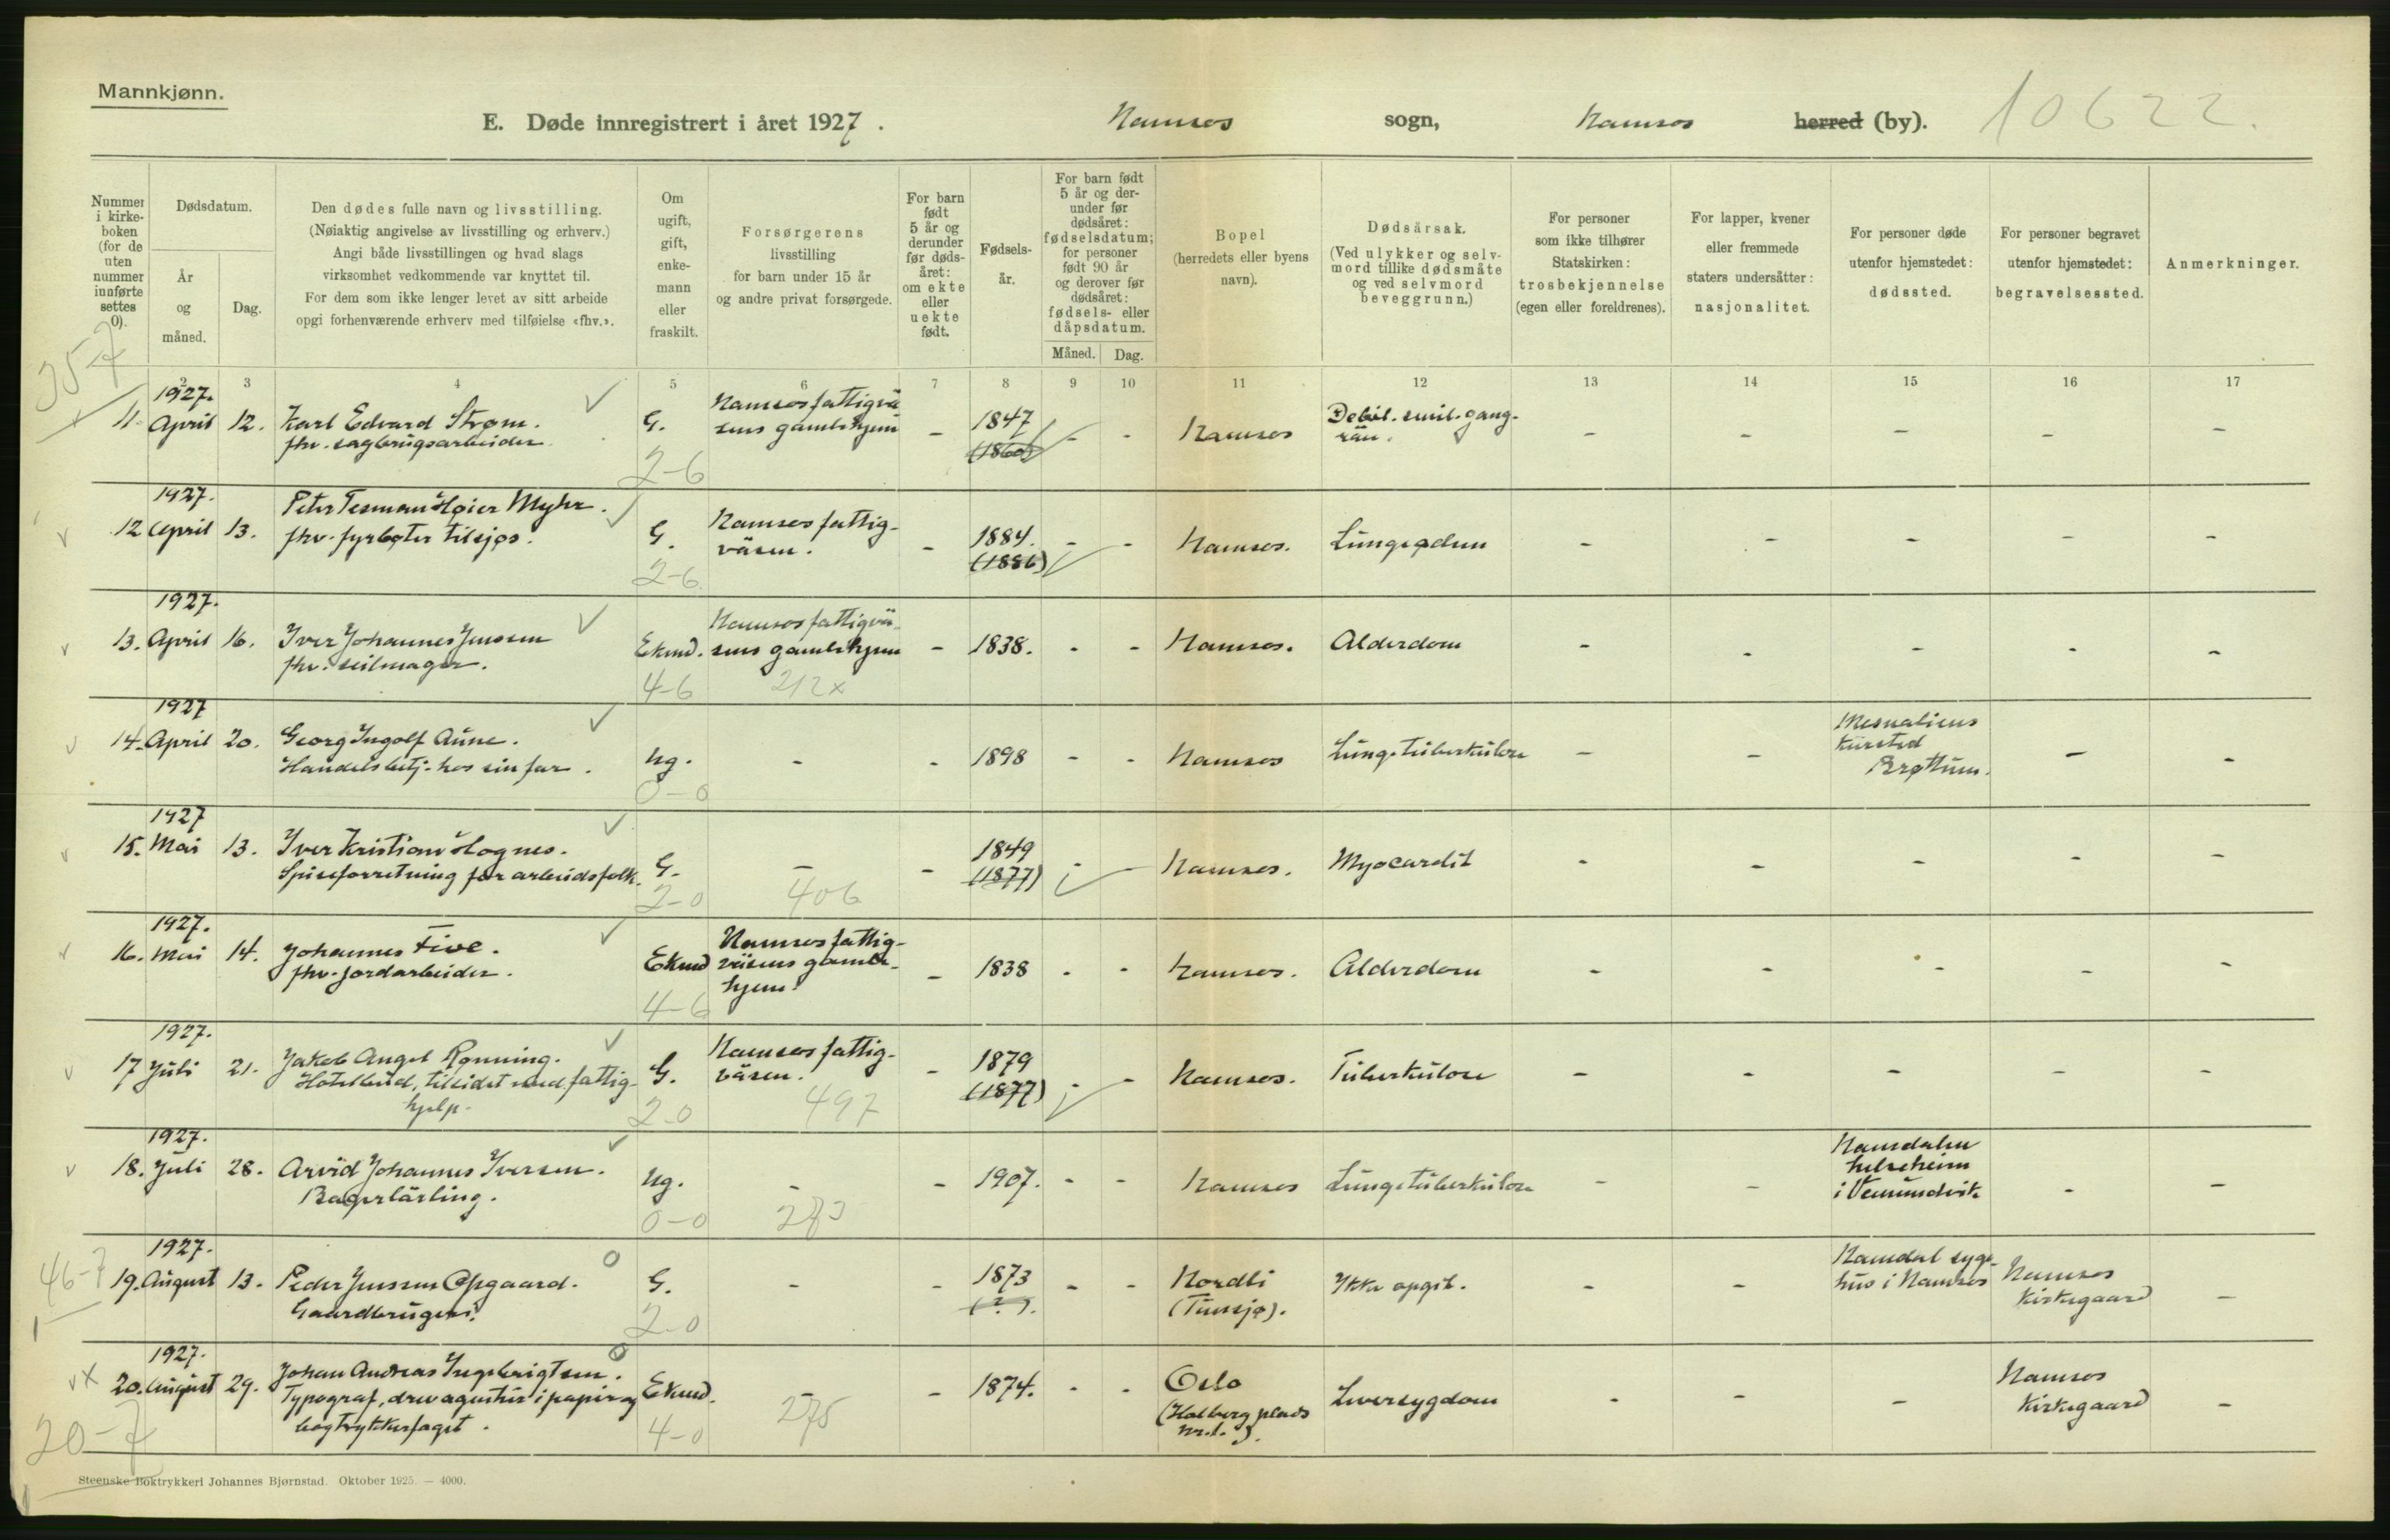 Mannkjønn.
E. Døde innregistrert i året 1927. Namsos sogn, Namsos herred (by). 10622.
Nummer i kirkeboken (for de uten nummer innførte settes 0).
Dødsdatum.
År og måned.
Dag.
Den dødes fulle navn og livsstilling.
(Nøiaktig angivelse av livsstilling og erhverv.)
Angi både livsstillingen og hvad slags
virksomhet vedkommende var knyttet til.
For dem som ikke lenger levet av sitt arbeide
opgi forhenværende erhverv med tilføielse «fhv.».
Om ugift, gift, enkemann eller fraskilt.
Forsørgerens
livsstilling
for barn under 15 år
og andre privat forsørgede.
For barn født 5 år og derunder før dødsåret: om ekte eller uekte født.
Fødselsår.
For barn født 5 år og derunder før dødsåret: fødselsdatum; for personer født 90 år og derover før dødsåret: fødsels- eller dåpsdatum.
Måned. Dag.
Bopel
(herredets eller byens
navn).
Dødsårsak.
(Ved ulykker og selvmord tillike dødsmåte og ved selvmord beveggrunn.)
For personer
som ikke tilhører
Statskirken:
trosbekjennelse
(egen eller foreldrenes).
For lapper, kvener
eller fremmede
staters undersåtter:
nasjonalitet.
For personer døde
utenfor hjemstedet:
dødssted.
For personer begravet
utenfor hjemstedet:
begravelsessted.
Anmerkninger.
2 3 4 5 6 7 8 9 10 11 12 13 14 15 16 17
35-7
1927.
11. April 12. Karl Edvard Strøm.
fhv. sagbrugsarbeider
G.
2-6
Namsos fattigvä
sens gamlehjem
- 1847
(1860)
- - Namsos
Debil. senil. gang-
rän.
- - - - -
1927.
12 April 13. Peter Tesman Høier Myhr.
fhv. fyrbøter tilsjøs.
G.
2-6
Namsos fattig-
väsen.
- 1884.
(1886)
- - Namsos. Lungeødem - - - - -
1927.
13. April 16. Iver Johannes Jenssen
fhv. seilmager.
Ekmd.
4-6
Namsos fattigvä-
sens gamlehjem
212x
- 1838. - - Namsos. Alderdom - - - - -
1927
14. April 20. Georg Ingolf Aune.
Handelsbetj. hos sin far.
Ug.
0-0
- - 1898 - - Namsos Lungetuberkulose - -
Mesnaliens
Kursted
Brøttum.
- -
1927
15. Mai 13. Iver Kristian Hognes.
Spiseforretning for arbeidsfolk.
G.
2-0
-
406
- 1849
(1877)
- - Namsos. Myocardit - - - - -
1927.
16. Mai 14. Johannes Five.
fhv. jordarbeider.
Ekmd
4-6
Namsos fattig-
väsens gamle-
hjem.
- 1838 - - Namsos. Alderdom - - - - -
1927.
17 Juli 21. Jakob Angel Rønning.
Hotelbud, tilsidst med fattig-
hjelp.
G.
2-0
Namsos fattig-
väsen.
497
- 1879
(1877)
- - Namsos. Tuberkulose - - - - -
1927.
18. Juli 28. Arvid Johannes Iversen.
Bagerlärling.
Ug.
0-0
-
283
- 1907. - - Namsos Lungetuberkulose - -
Namdalen
helseheim
i Vemundvik
- -
46-7
1927.
19. August 13. Peder Jenssen Opgaard.
Gaardbruger.
G.
2-0
- - 1873
(?).
- - Nordli
(Tunsjø).
Ikke opgit. - -
Namdal syge-
hus i Namsos
Namsos
Kirkegaard
-
1927.
20. August 29. Johan Andreas Ingebrigtsen.
Typograf, drev agentur i papir og
bogtrykkerfaget.
Ekmd.
4-0
-
275
- 1874. - - Oslo
(Holberg plads
nr. 1.).
Leversygdom - - -
Namsos
Kirkegaard
-
20-7
Steenske Boktrykkeri Johannes Bjørnstad. Oktober 1925. — 4000.